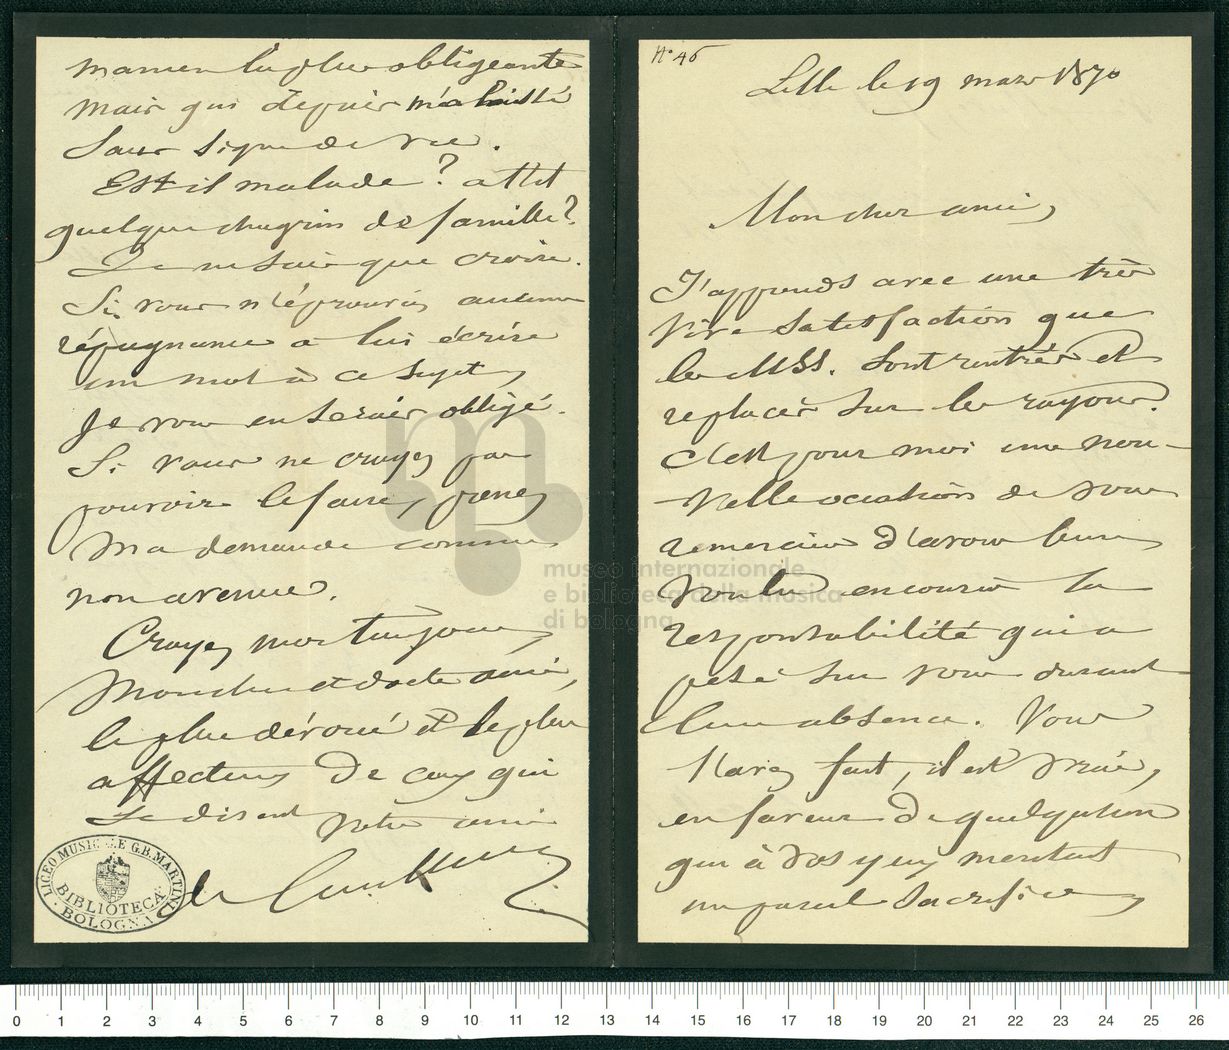 N° 46
Lille le 19 mars 1870
Mon cher ami,
J'apprends avec une très
vive satisfaction que
les MSS. sont rentrés et
replacés sur les rayons.
C'est pour moi une nou-
velle occasion de vous
remercier d'avoir bien
voulu encourir la
responsabilité qui a
pesé sur vous durant
leur absence. Vous
l'avez fait, il est vrai,
en faveur de quelqu'un
qui à vos yeux méritait
un pareil sacrifice
manière la plus obligeante
mais qui depuis m'a laissé
sans signe de vie.
Est-il malade? a t'il
quelque chagrin de famille?
Je ne sais que croire.
Si vous n'éprouvez aucune
répugnance à lui écrire
un mot à ce sujet,
je vous en serais obligé.
Si vous ne croyez pas
pouvoir le faire, prenez
ma demande comme
non avenue.
Croyez moi toujours,
Mon cher et docte ami,
le plus dévoué et le plus
affectueux de ceux qui
se disent votre ami
de Coussemaker
LICEO MUSICALE G.B. MARTINI
BIBLIOTECA
BOLOGNA
museo internazionale
e biblioteca della musica
di bologna
0 1 2 3 4 5 6 7 8 9 10 11 12 13 14 15 16 17 18 19 20 21 22 23 24 25 26